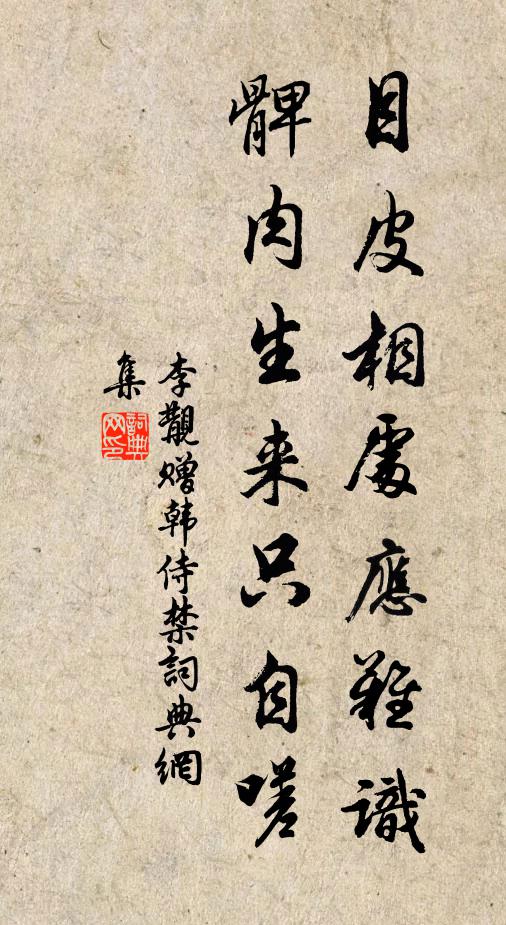 目皮相處應難識
髀肉生来只自嗟
李覯赠韩侍禁詞典網
集
詞典
网印